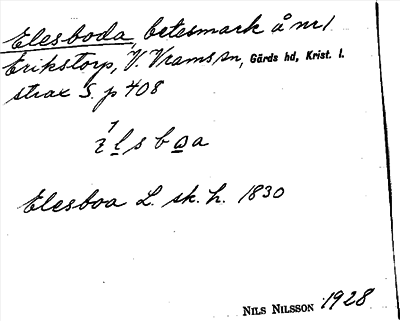 Elesboda, betesmark å nr 1
Erikstorp, V. Vrams sn, Gärds hd, Krist. l.
strax S. p 408
ìl̲sbo̲a
Elesboa L. sk. h. 1830
NILS NILSSON 1928